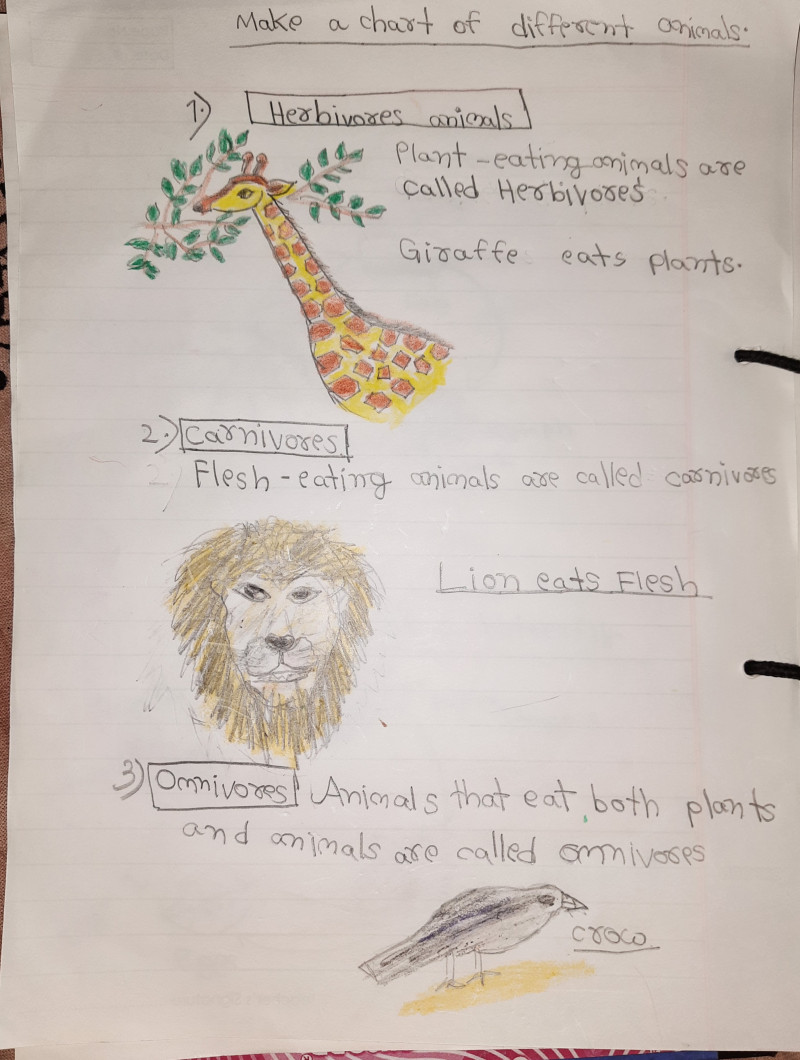 Make a chart of different animals.
1.) Herbivores animals
Plant-eating animals are
called Herbivores
Giraffe eats plants.
2.) Carnivores
Flesh-eating animals are called carnivores
Lion eats Flesh
3) Omnivores Animals that eat both plants
and animals are called omnivores
crow